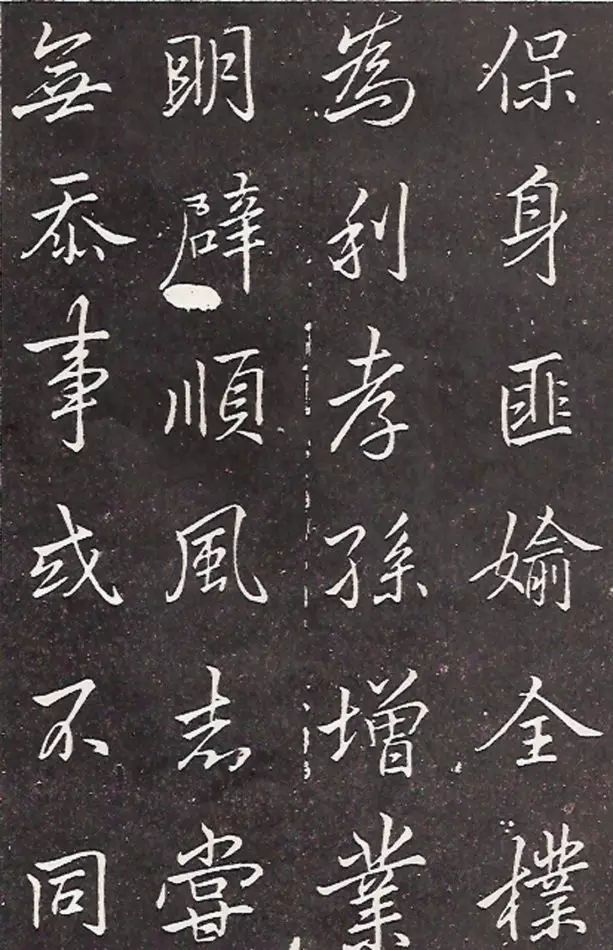 保身匪媮全樸
為利孝孫增業
明辟順風志當
無忝事或不同